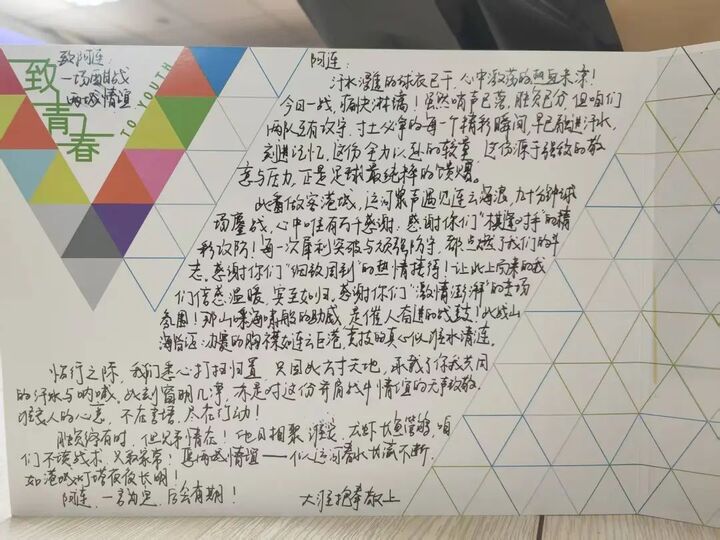 致青春
TO YOUTH
致阿连：
一场酣战
两城情谊
阿连：
汗水浸透的球衣已干，心中激荡的热血未凉！
今日一战，痛快淋漓！虽然哨声已落，胜负已分，但咱们
两队互有攻守、寸土必争的每一个精彩瞬间，早已融进汗水，
刻进记忆。这份全力以赴的较量，这份源于强敌的敬
意与压力，正是足球最纯粹的馈赠。
此番做客港城，运河桨声遇见连云海浪，九十分钟球
场鏖战，心中唯有万千感谢。感谢你们“棋逢对手”的精
彩攻防！每一次犀利突破与顽强防守，都点燃了我们的斗
志。感谢你们“细致周到”的热情接待！让北上而来的我
们倍感温暖，宾至如归。感谢你们“激情澎湃”的主场
氛围！那山呼海啸般的助威，是催人奋进的战鼓！此城山
海皆证：办赛的胸襟如连云巨港，竞技的真心似淮水清涟。
临行之际，我们悉心打扫归置，只因此方寸天地，承载了你我共同
的汗水与呐喊，此刻窗明几净，亦是对这份并肩战斗情谊的无声致敬。
淮安人的心意，不在言语，尽在行动！
胜负终有时，但兄弟情在！他日相聚淮安，龙虾长鱼管够，咱
们不谈战术，只叙家常！愿两城情谊——似运河春水长流不断，
如港城灯塔夜夜长明！
阿连，一言为定，后会有期！
大淮抱拳敬上